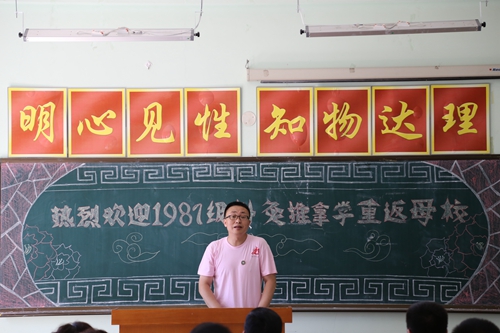 明心见性 知物达理
热烈欢迎1987级 灸推拿学重返母校